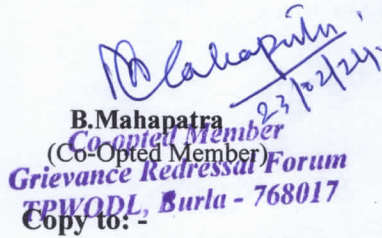 23/02/24
B.Mahapatra
Co-opted Member
(Co-Opted Member)
Grievance Redressal Forum
TPWODL, Burla - 768017
Copy to: -